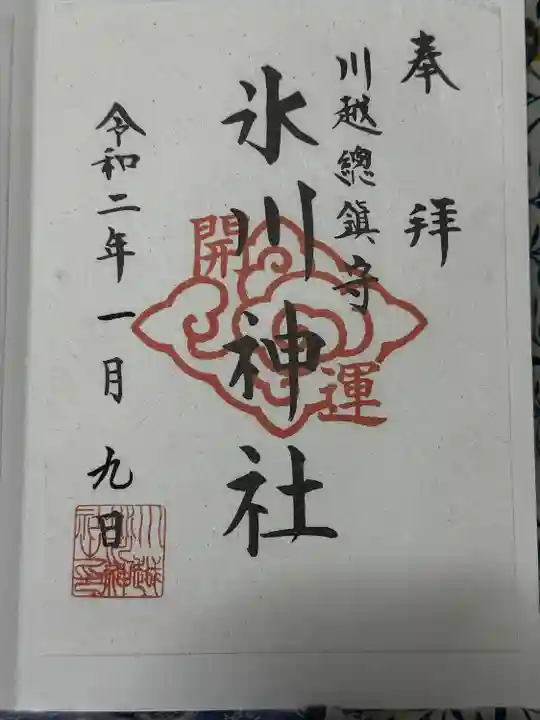 奉拝
川越總鎮守
氷川神社
開運
令和二年一月九日
川越
氷川神
社之印